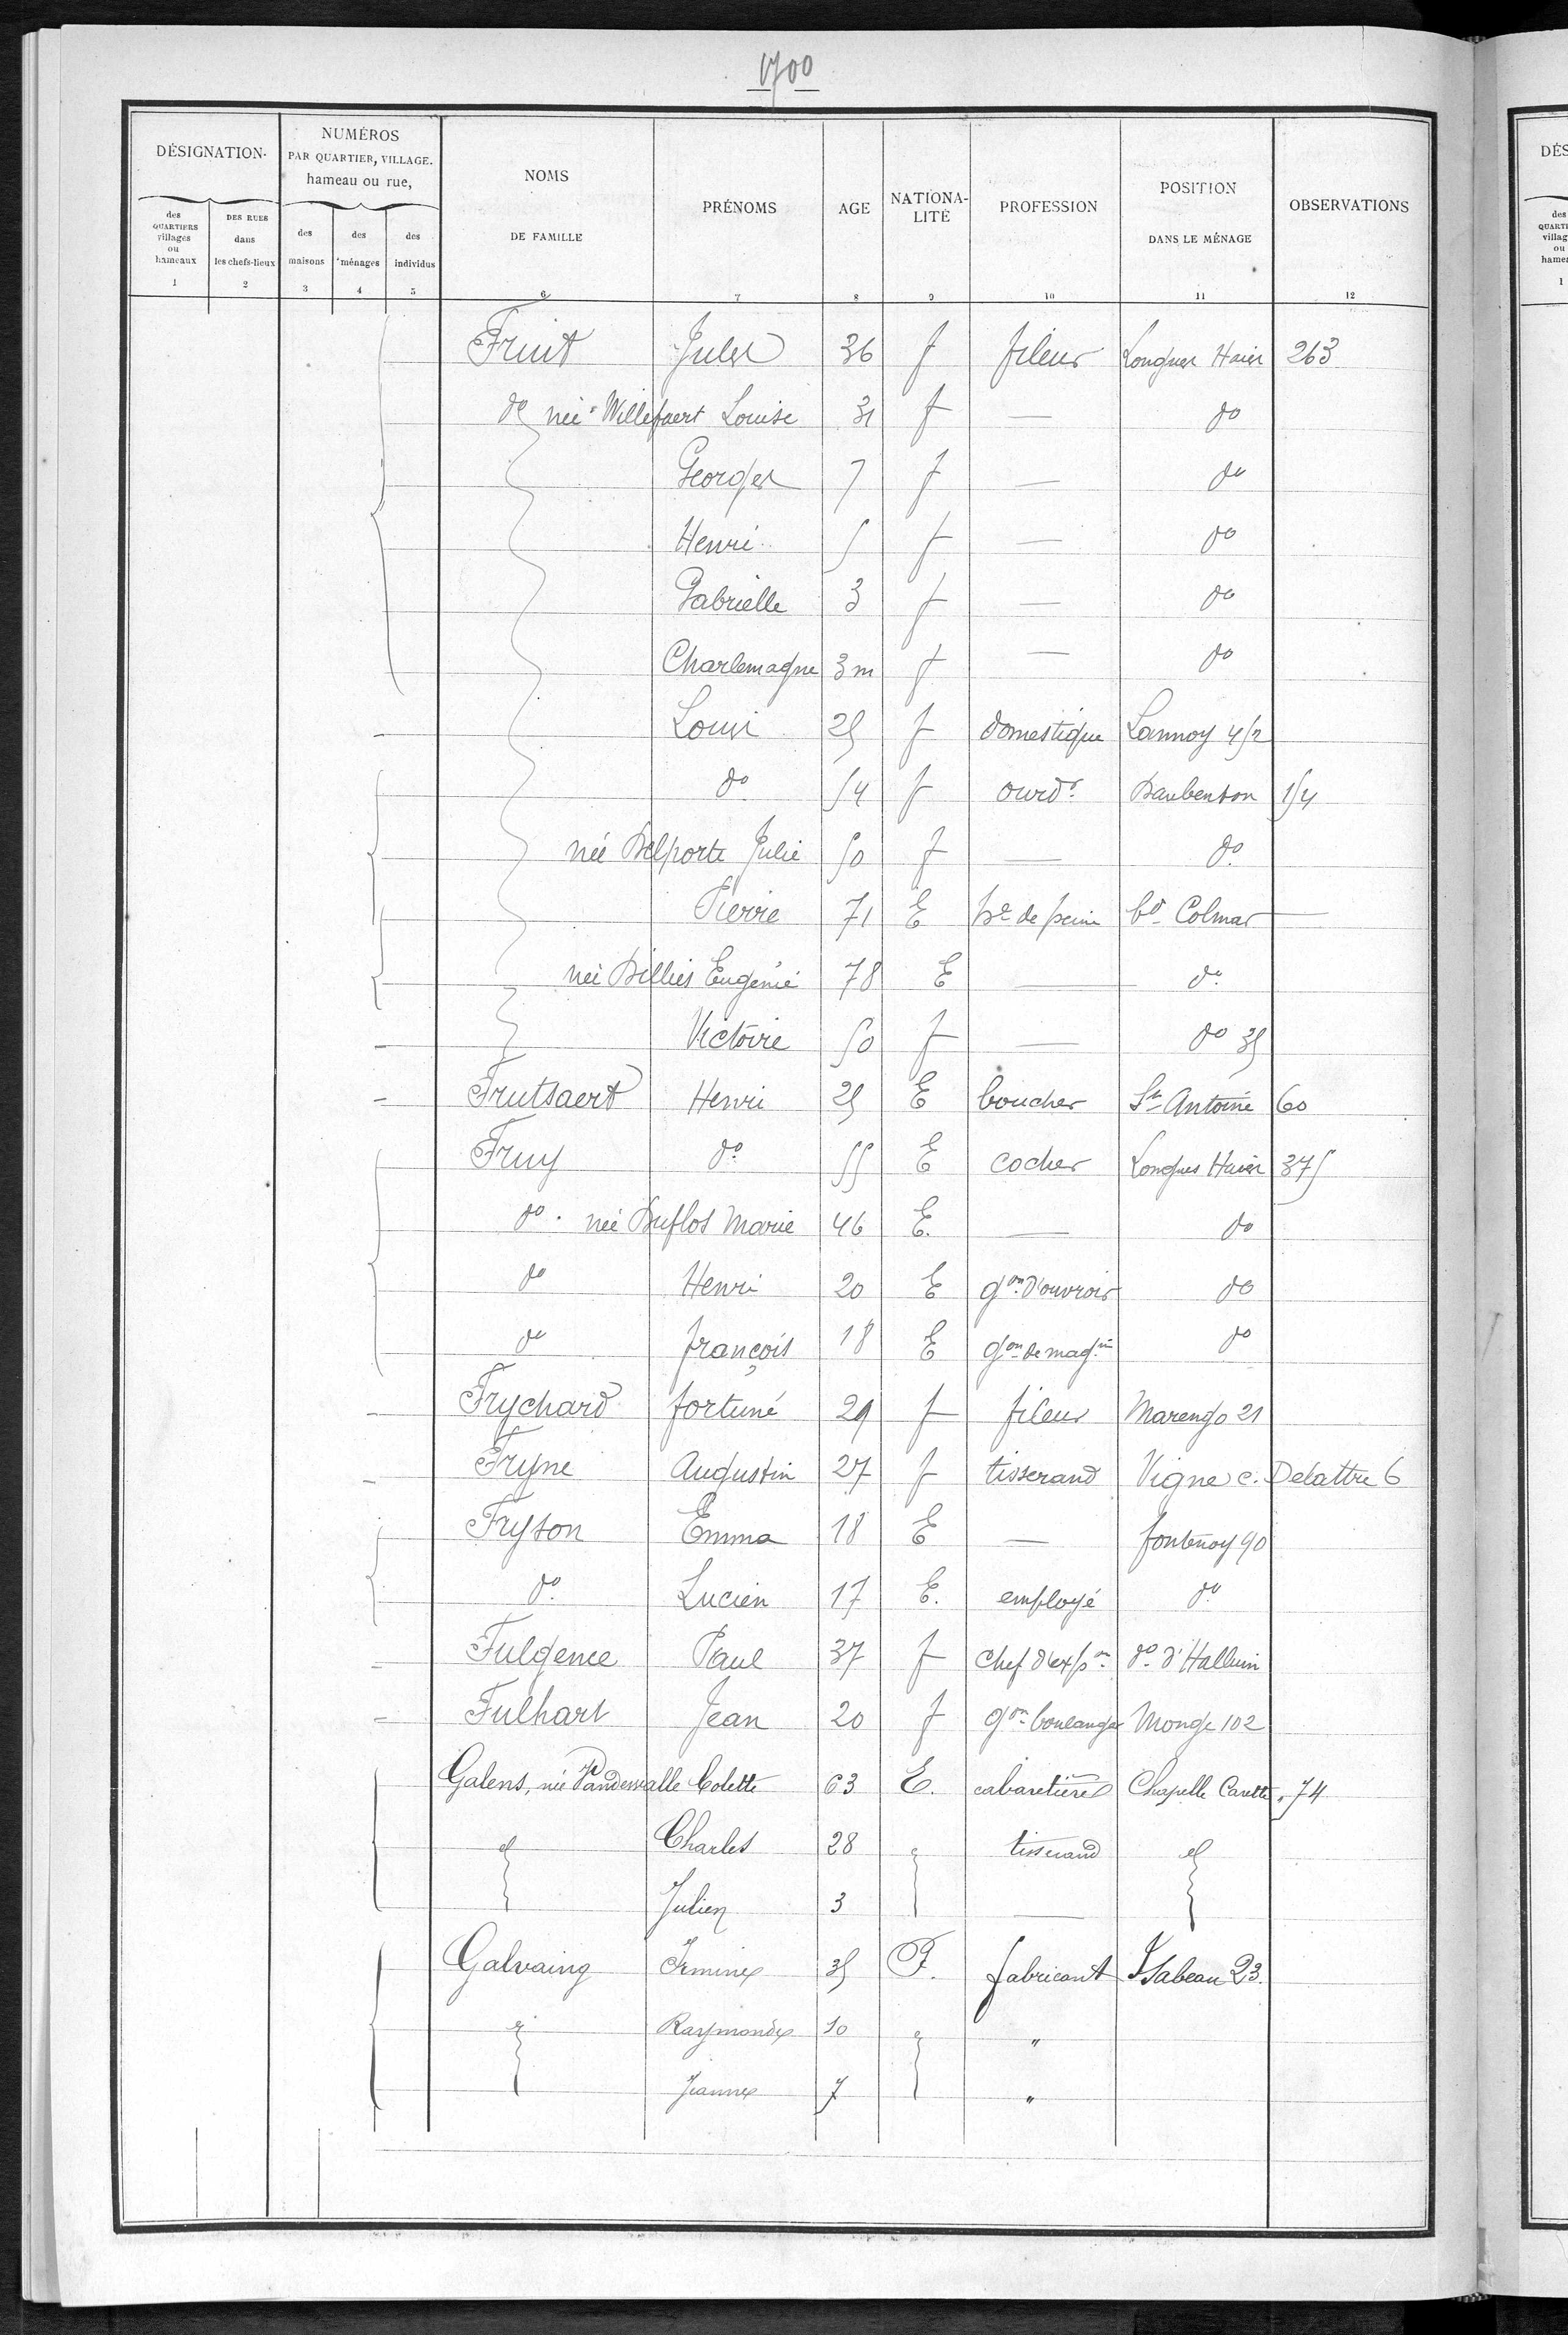 1700
DÉSIGNATION
NUMÉROS
PAR QUARTIER, VILLAGE.
hameau ou rue,
NOMS
DE FAMILLE
PRÉNOMS
AGE
NATIONA-
LITÉ
PROFESSION
POSITION
DANS LE MÉNAGE
OBSERVATIONS
des
QUARTIERS
villages
ou
hameaux
DES RUES
dans
les chefs-lieux
des
maisons
des
ménages
des
individus
1 2 3 4 5 6 7 8 9 10 11 12
Fruit Jules 36 f fileur Longues Haies 263
do née Willefaert Louise 31 f — do
Georges 7 f — do
Henri 5 f — do
Gabrielle 3 f — do
Charlemagne 3m f — do
Louis 25 f domestique Lannoy 452
do 54 f ourdr Daubenton 154
née Delporte Julie 50 f — do
Pierre 71 E he de peine bd Colmar —
née Dillies Eugénie 78 E — do
Victoire 50 f — do 35
Frutsaert Henri 25 E boucher St Antoine 60
Fruy do 55 E cocher Longues Haies 375
do née Duflos Marie 46 E. — do
do Henri 20 E gon d'ouvroir do
do françois 18 E gon de magin do
Frychard fortuné 29 f fileur Marengo 21
Fryne Augustin 27 f tisserand Vigne c. Delattre 6
Fryson Emma 18 E — fontenoy 90
do Lucien 17 E. employé do
Fulgence Paul 37 f chef d'expon do d'Halluin
Fulhart Jean 20 f gon boulanger Monge 102
Galens, née Vandewalle Colette 63 E. cabaretière Chapelle Carette, 74
d Charles 28 tisserand d
Julien 3 —
Galvaing Irmine 35 F. fabricant Isabeau 23.
Raymonde 10 "
Jeanne 7 "
DÉS
des
QUARTI
villag
ou
hamea
1